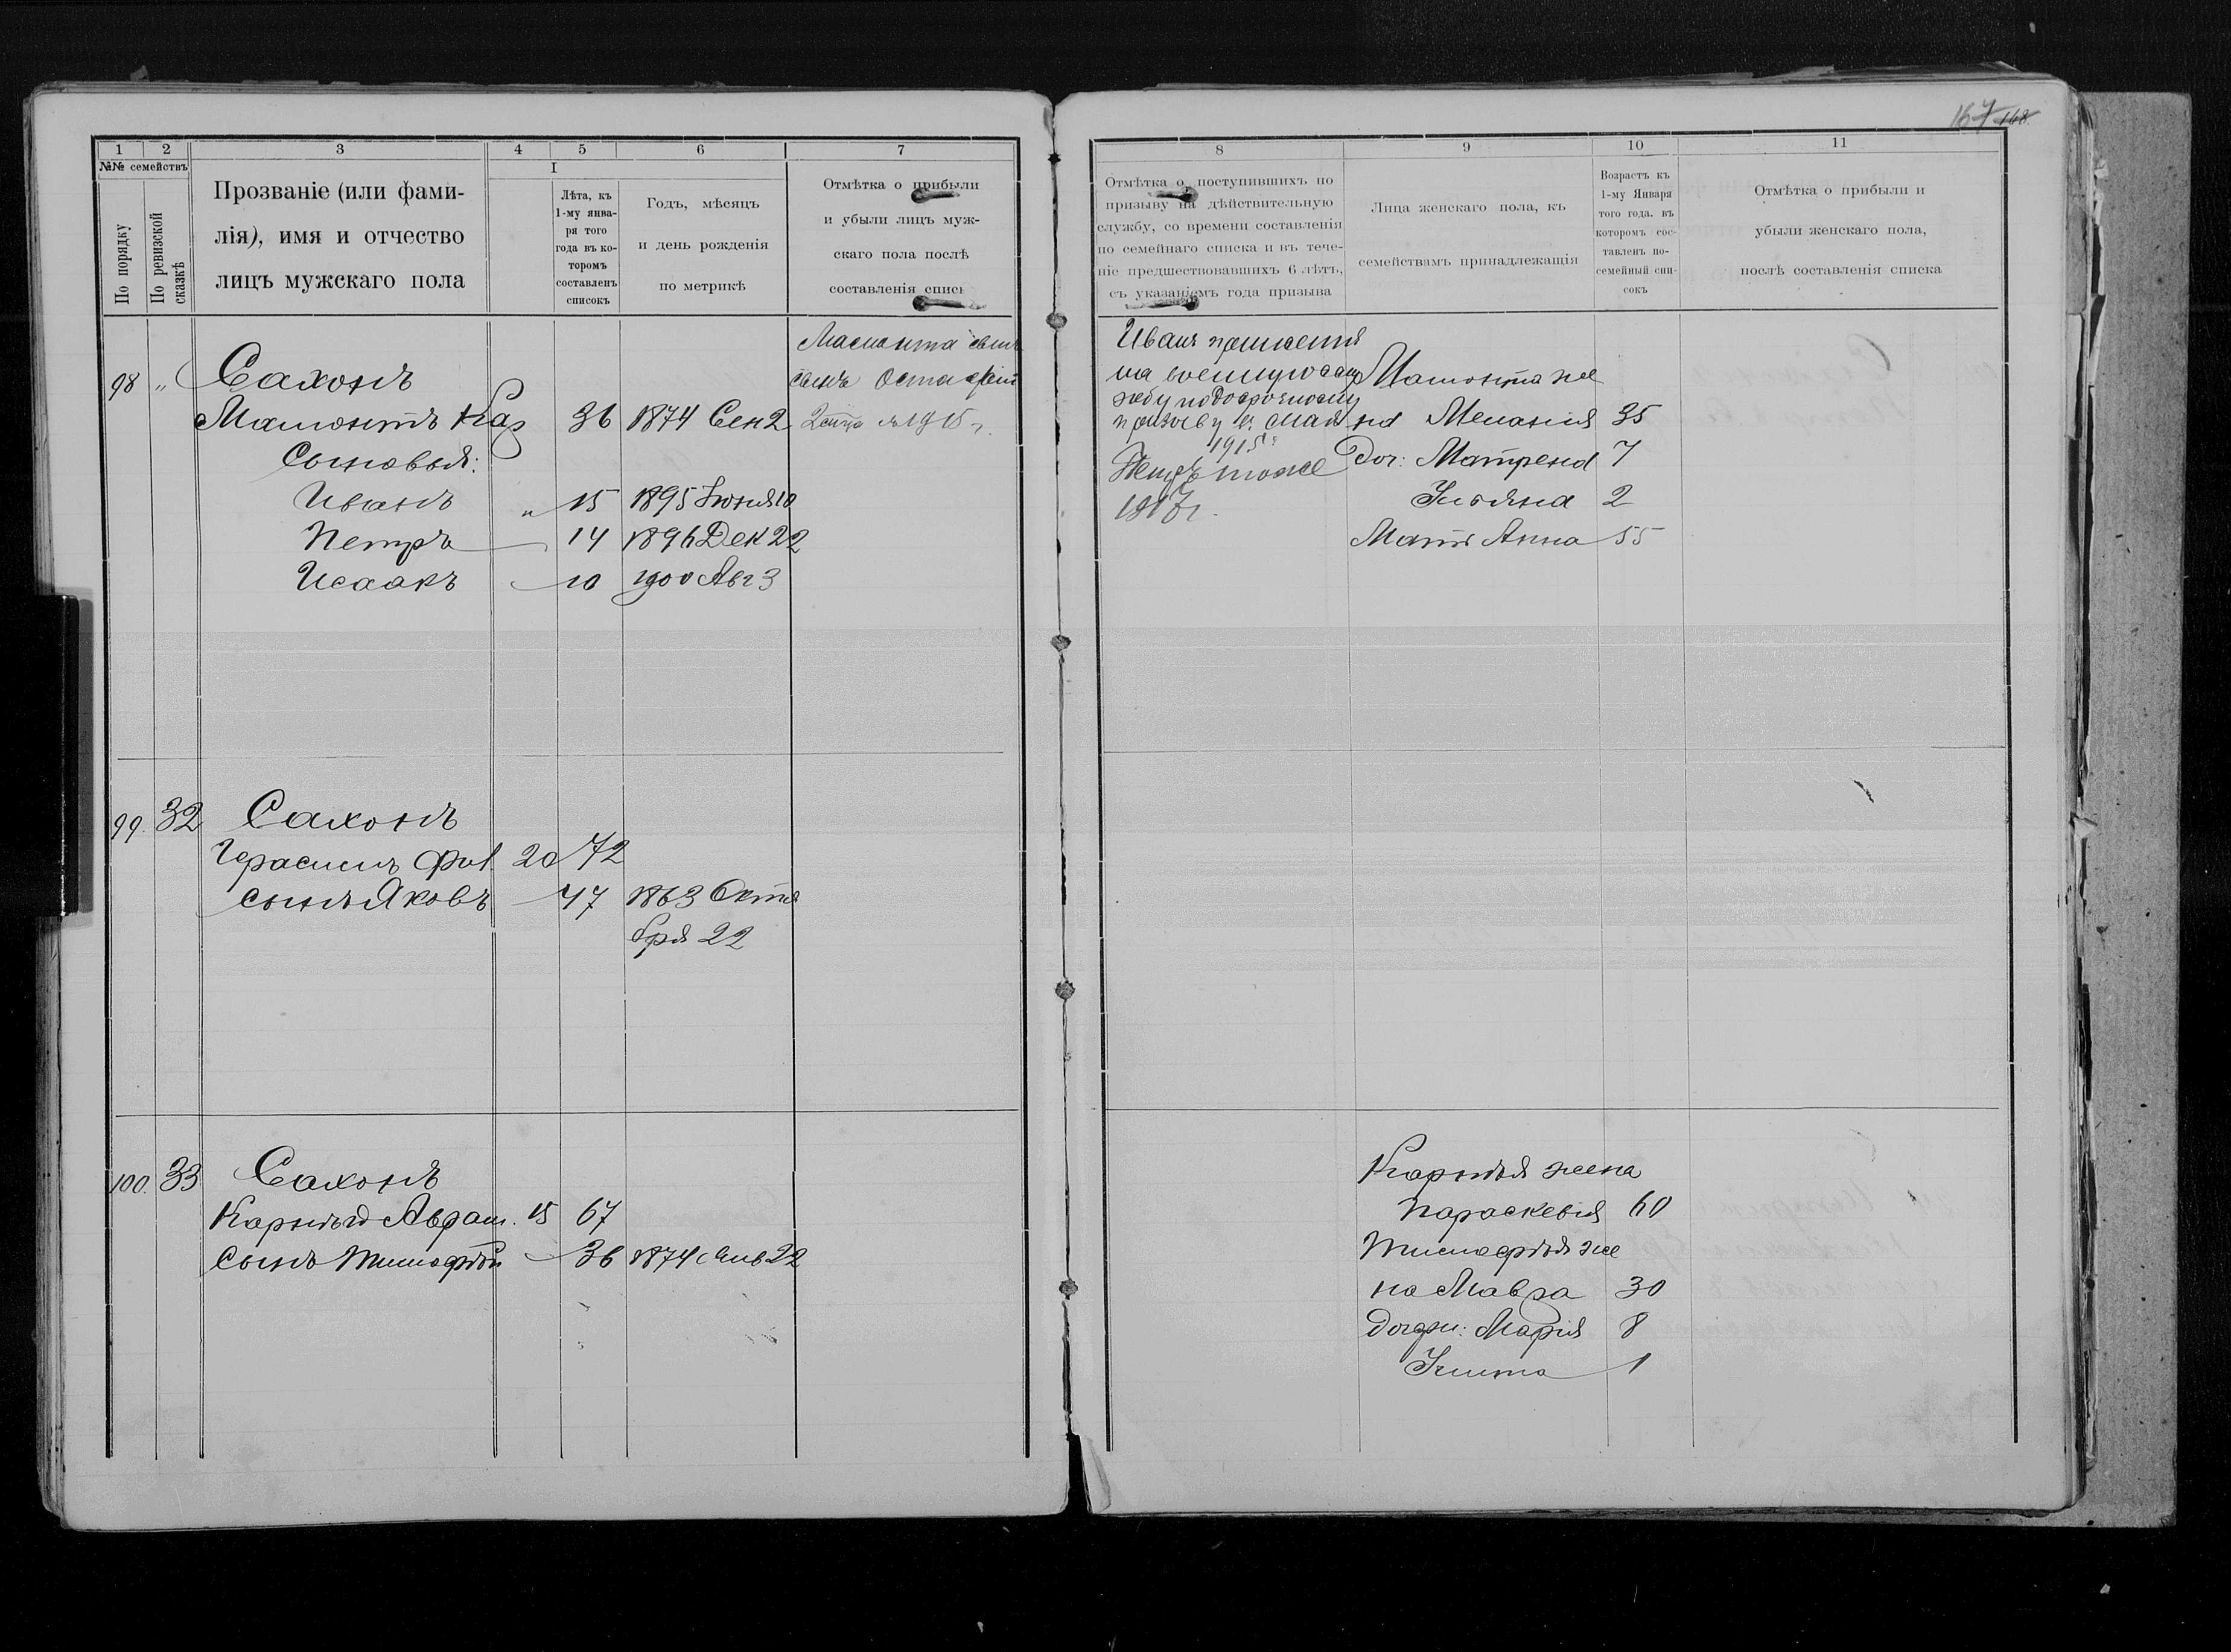 167 168.
1 2 3 4 5 6 7
№№ семействъ
По порядку
По ревизской сказкѣ
Прозваніе (или фами-
лія), имя и отчество
лицъ мужскаго пола
I
Лѣта, къ
1-му янва-
ря того
года въ ко-
торомъ
составленъ
списокъ
Годъ, мѣсяцъ
и день рожденія
по метрикѣ
Отмѣтка о прибыли
и убыли лицъ муж-
скаго пола послѣ
составленія списк
98 „ Сахонъ
Мамонтъ Каз 36 1874 Сен 2
Сыновья:
Иванъ „ 15 1895 Іюня 10
Петръ — 14 1896 Дек 22
Исаакъ — 10 1900 Авг 3
Мамонта сынъ
1915 г.
99. 32 Сахонъ
Герасимъ Фил. 20 72
сынъ Яковъ — 47 1863 Октя
бря 22
100. 33 Сахонъ
Карнѣй Аврам. 15 67
сынъ Тимофѣй — 36 1874 Янв 22
8 9 10 11
Отмѣтка о поступившихъ по
призыву на дѣйствительную
службу, со времени составленія
по семейнаго списка и въ тече-
ніе предшествовавшихъ 6 лѣтъ,
съ указаніемъ года призыва
Лица женскаго пола, къ
семействамъ принадлежащія
Возрастъ къ
1-му Января
того года, въ
которомъ сос-
тавленъ по-
семейный спи-
сокъ
Отмѣтка о прибыли и
убыли женскаго пола,
послѣ составленія списка
Иванъ принятъ
на военную слу
жбу по досрочному
призыву въ маѣ
1915 г.
Петръ тоже
Мамонта же
на Меланія 35
Доч: Матрена 7
Ульяна 2
Мать Анна 55
Карнѣя жена
Параскевія 60
Тимофѣя же
на Мавра 30
дочери: Марія 8